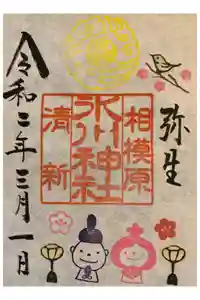 弥生
相模原
氷川神社
清新
令和二年三月一日